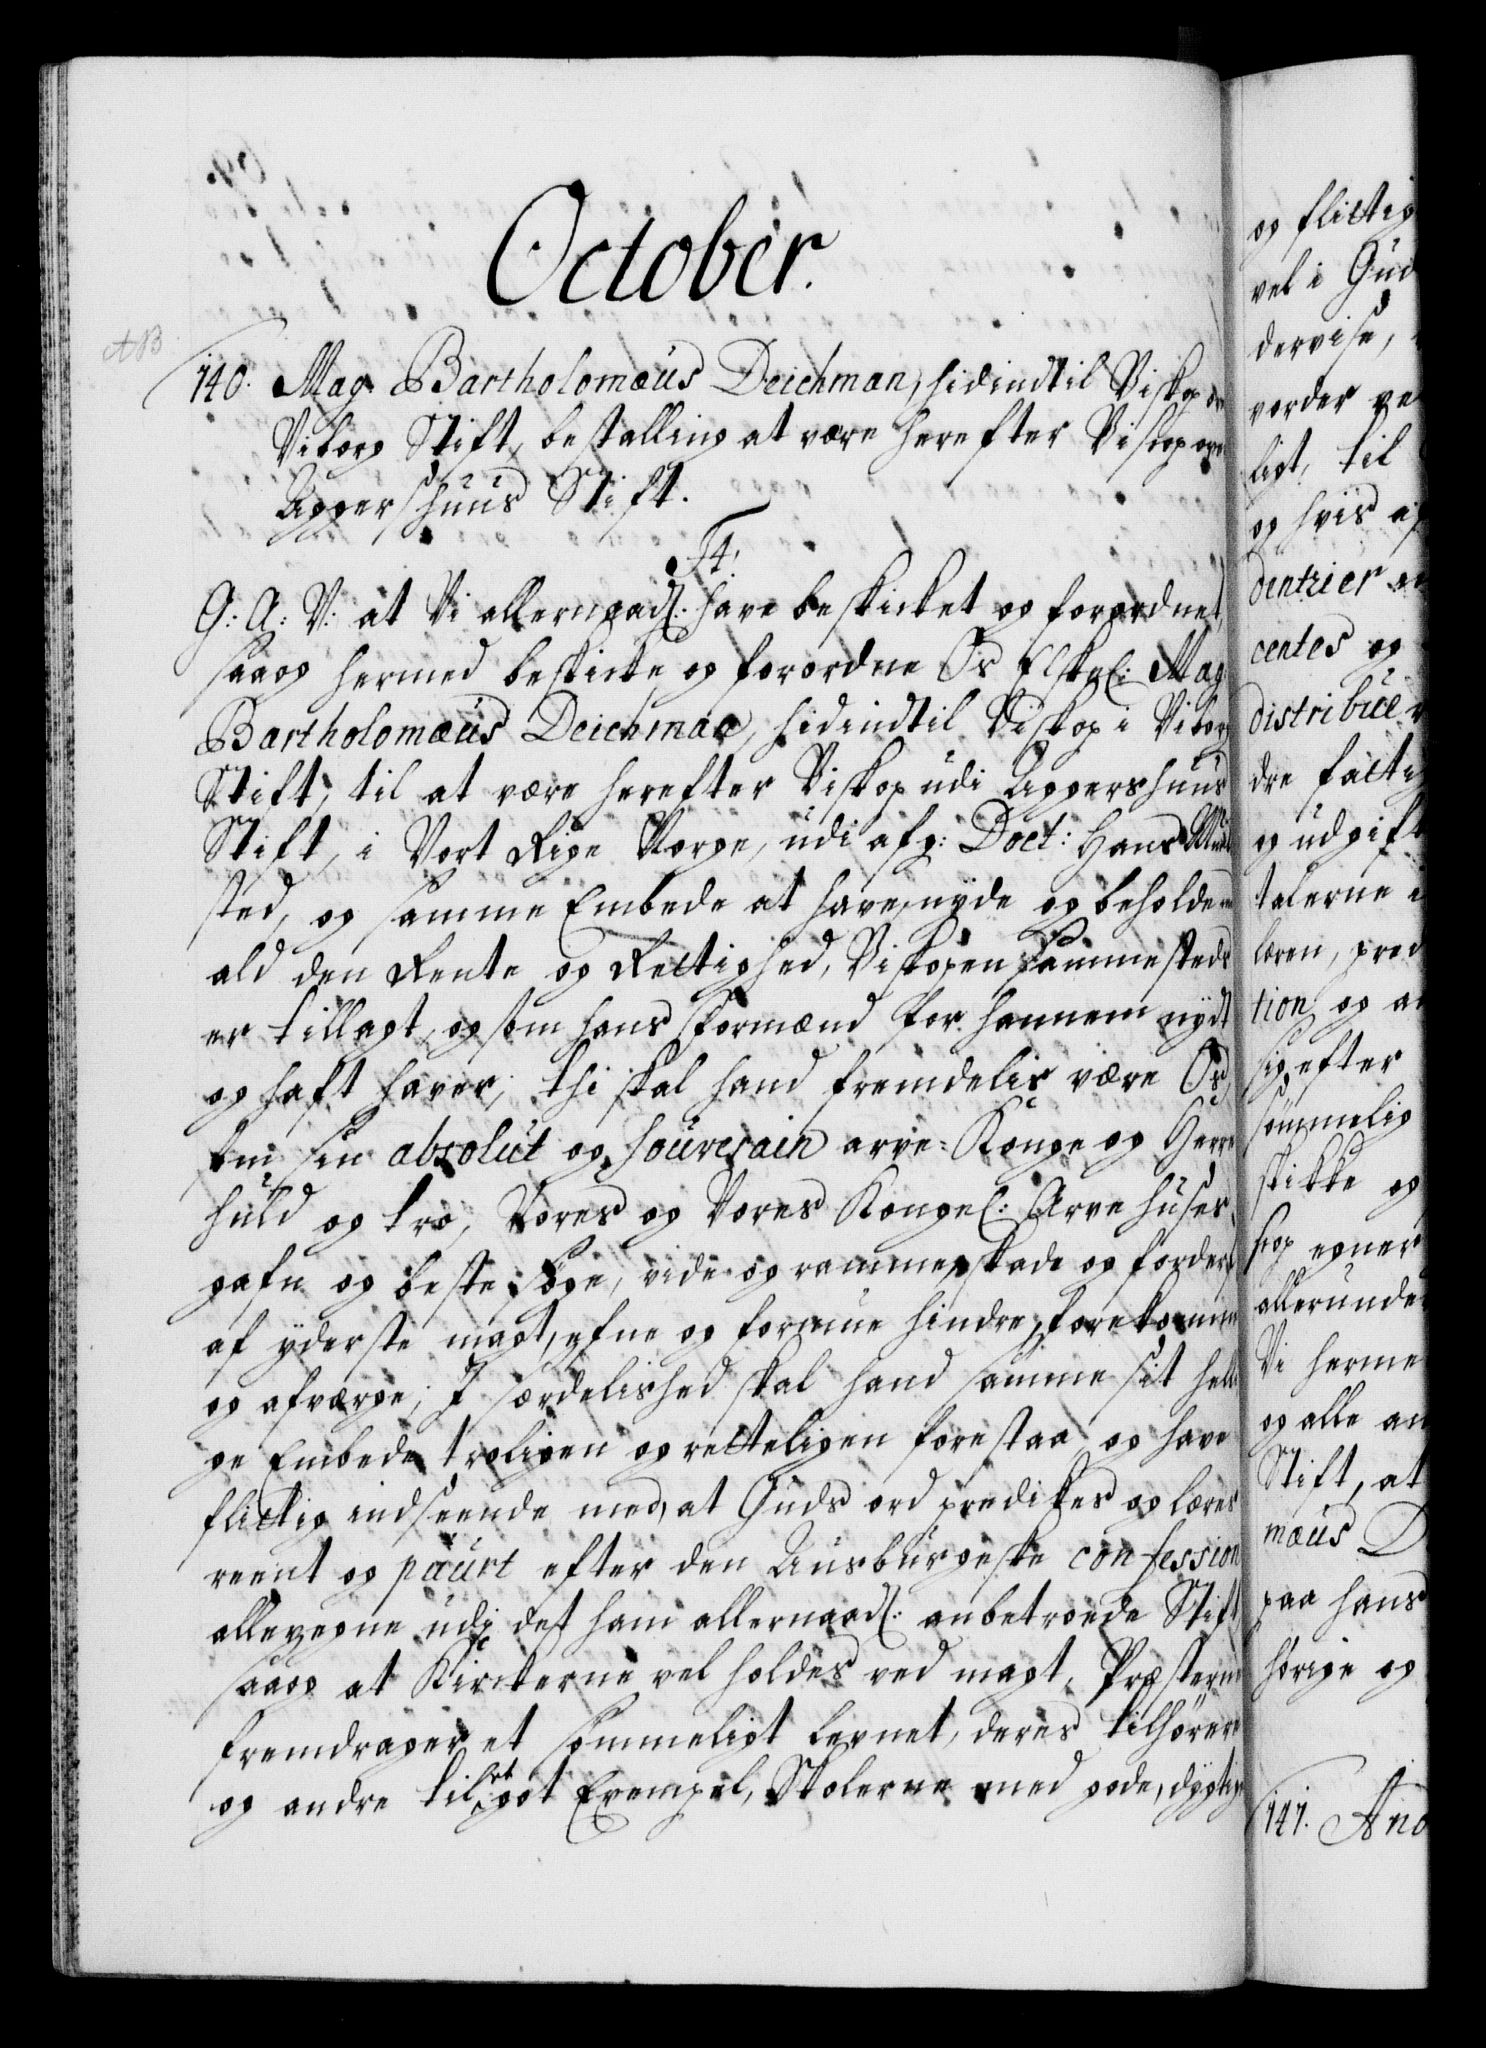 October.
AB
140. Mag. Bartholomæus Deichman, hidindtil Biskop
Viborg Stift, bestalling at være herefter Biskop
Aggershuus Stift.
F4.
G: A: V: at Vi allernaadl: have beskicket og forordnet,
saa og hermed beskicke og forordne Os Elskel: Mag
Bartholomæus Deichman, hidindtil Biskop i Viborg
Stift, til at være herefter Biskop udi Aggershuus
Stift, i Vort Rige Norge, udi afg: Doct: Hans
sted, og samme Embede at have, nyde og beholde
ald den Rente og Rettighed, Biskopen sammesteds
er tillagt, og som hans Formænd for hannem nydt
og haft haver; thi skal hand fremdelis være Os,
som sin absolut og souverain arve-Konge og Herre
huld og tro, Vores og Vores Kongel: Arve Huses
gafn og beste søge, vide og ramme, skade og forderf
af yderste magt, efne og formue hindre, forekomme
og afværge; I særdelished skal hand samme sit helli
ge Embede troligen og retteligen forestaa og have
flittig indseende med, at Guds ord predikes og læres
reent og puurt efter den Ausburgeske confession
allevegne udj det ham allernaadl: anbetroede Stift
saa og at Kirckerne vel holdes ved magt, Præsterne
fremdrager et sømmeligt levnet, deres tilhørere
og andre til et got Exempel, Skolerne med gode, dygtige
og flittig
vel i Gud
dervise,
vorder ve
ligt, til
og hvis
dentzier
centes og
distribue
dre fatti
og udgift
talerne i
læren, pred
tion og an
sig efter
sømmelig
skikke og
skop egner
allerunde
Vi herme
og alle an
Stift, at
mæus D
paa hans
hørige og
141. And